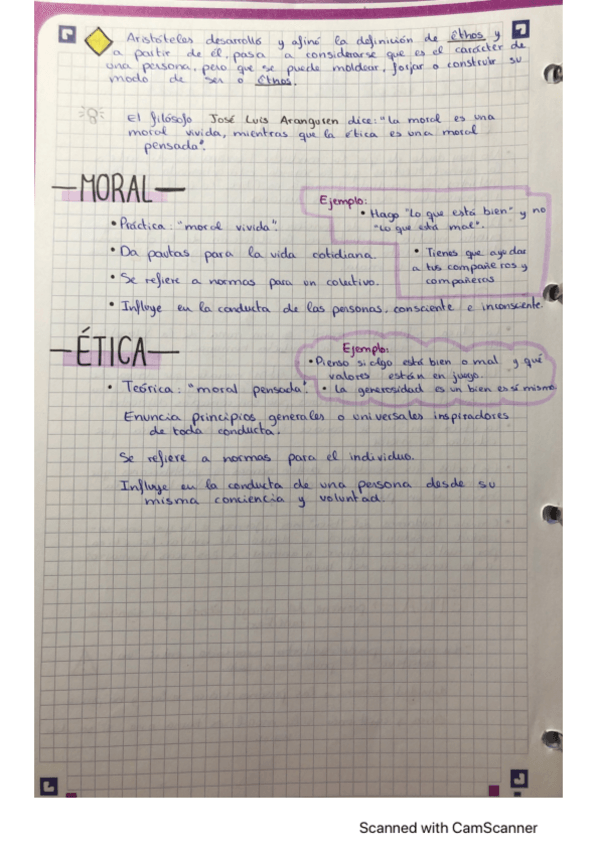 Aristóteles desarrolló y afinó la definición de Ethos y
a partir de él, pasa a considerarse que es el carácter de
una persona, pero que se puede moldear, forjar o construir su
modo de ser o Ethos.
El filósofo José Luis Aranguren dice: "La moral es una
moral vivida, mientras que la ética es una moral
pensada".
—MORAL—
Ejemplo:
• Hago "lo que está bien" y no
"lo que está mal".
• Práctica: "moral vivida".
• Da pautas para la vida cotidiana.
• Tienes que ayudar
a tus compañeros y
compañeras
• Se refiere a normas para un colectivo.
• Influye en la conducta de las personas, consciente e inconsciente.
—ÉTICA—
Ejemplo:
• Pienso si algo está bien o mal y qué
valores están en juego.
• Teórica: "moral pensada".
• La generosidad es un bien es sí mismo.
Enuncia principios generales o universales inspiradores
de toda conducta.
Se refiere a normas para el individuo.
Influye en la conducta de una persona desde su
misma conciencia y voluntad.
Scanned with CamScanner